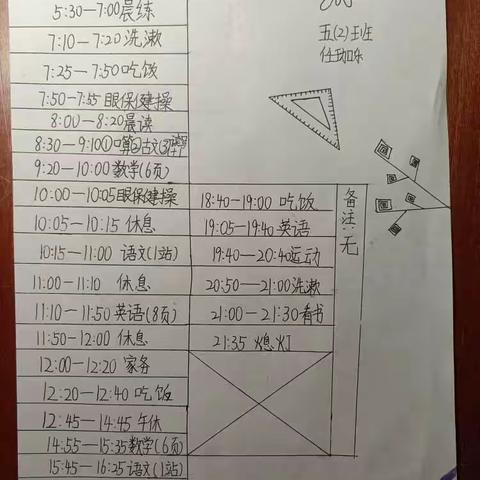 5:30—7:00晨练
7:10—7:20洗漱
7:25—7:50吃饭
7:50-7:55眼保健操
8:00—8:20晨读
8:30—9:10①口算②古文③
9:20—10:00数学(6页)
10:00—10:05眼保健操
10:05—10:15 休息
10:15—11:00 语文(1站)
11:00—11:10 休息
11:10—11:50英语(8页)
11:50-12:00 休息
12:00-12:20 家务
12:20—12:40 吃饭
12:45—14:45 午休
14:55—15:35数学(6页)
15:45—16:25语文(1站)
18:40-19:00 吃饭
19:05-19:40英语
19:40—20:40运动
20:50—21:00洗漱
21:00—21:30看书
21:35 熄灯
备注:无
五(2)班